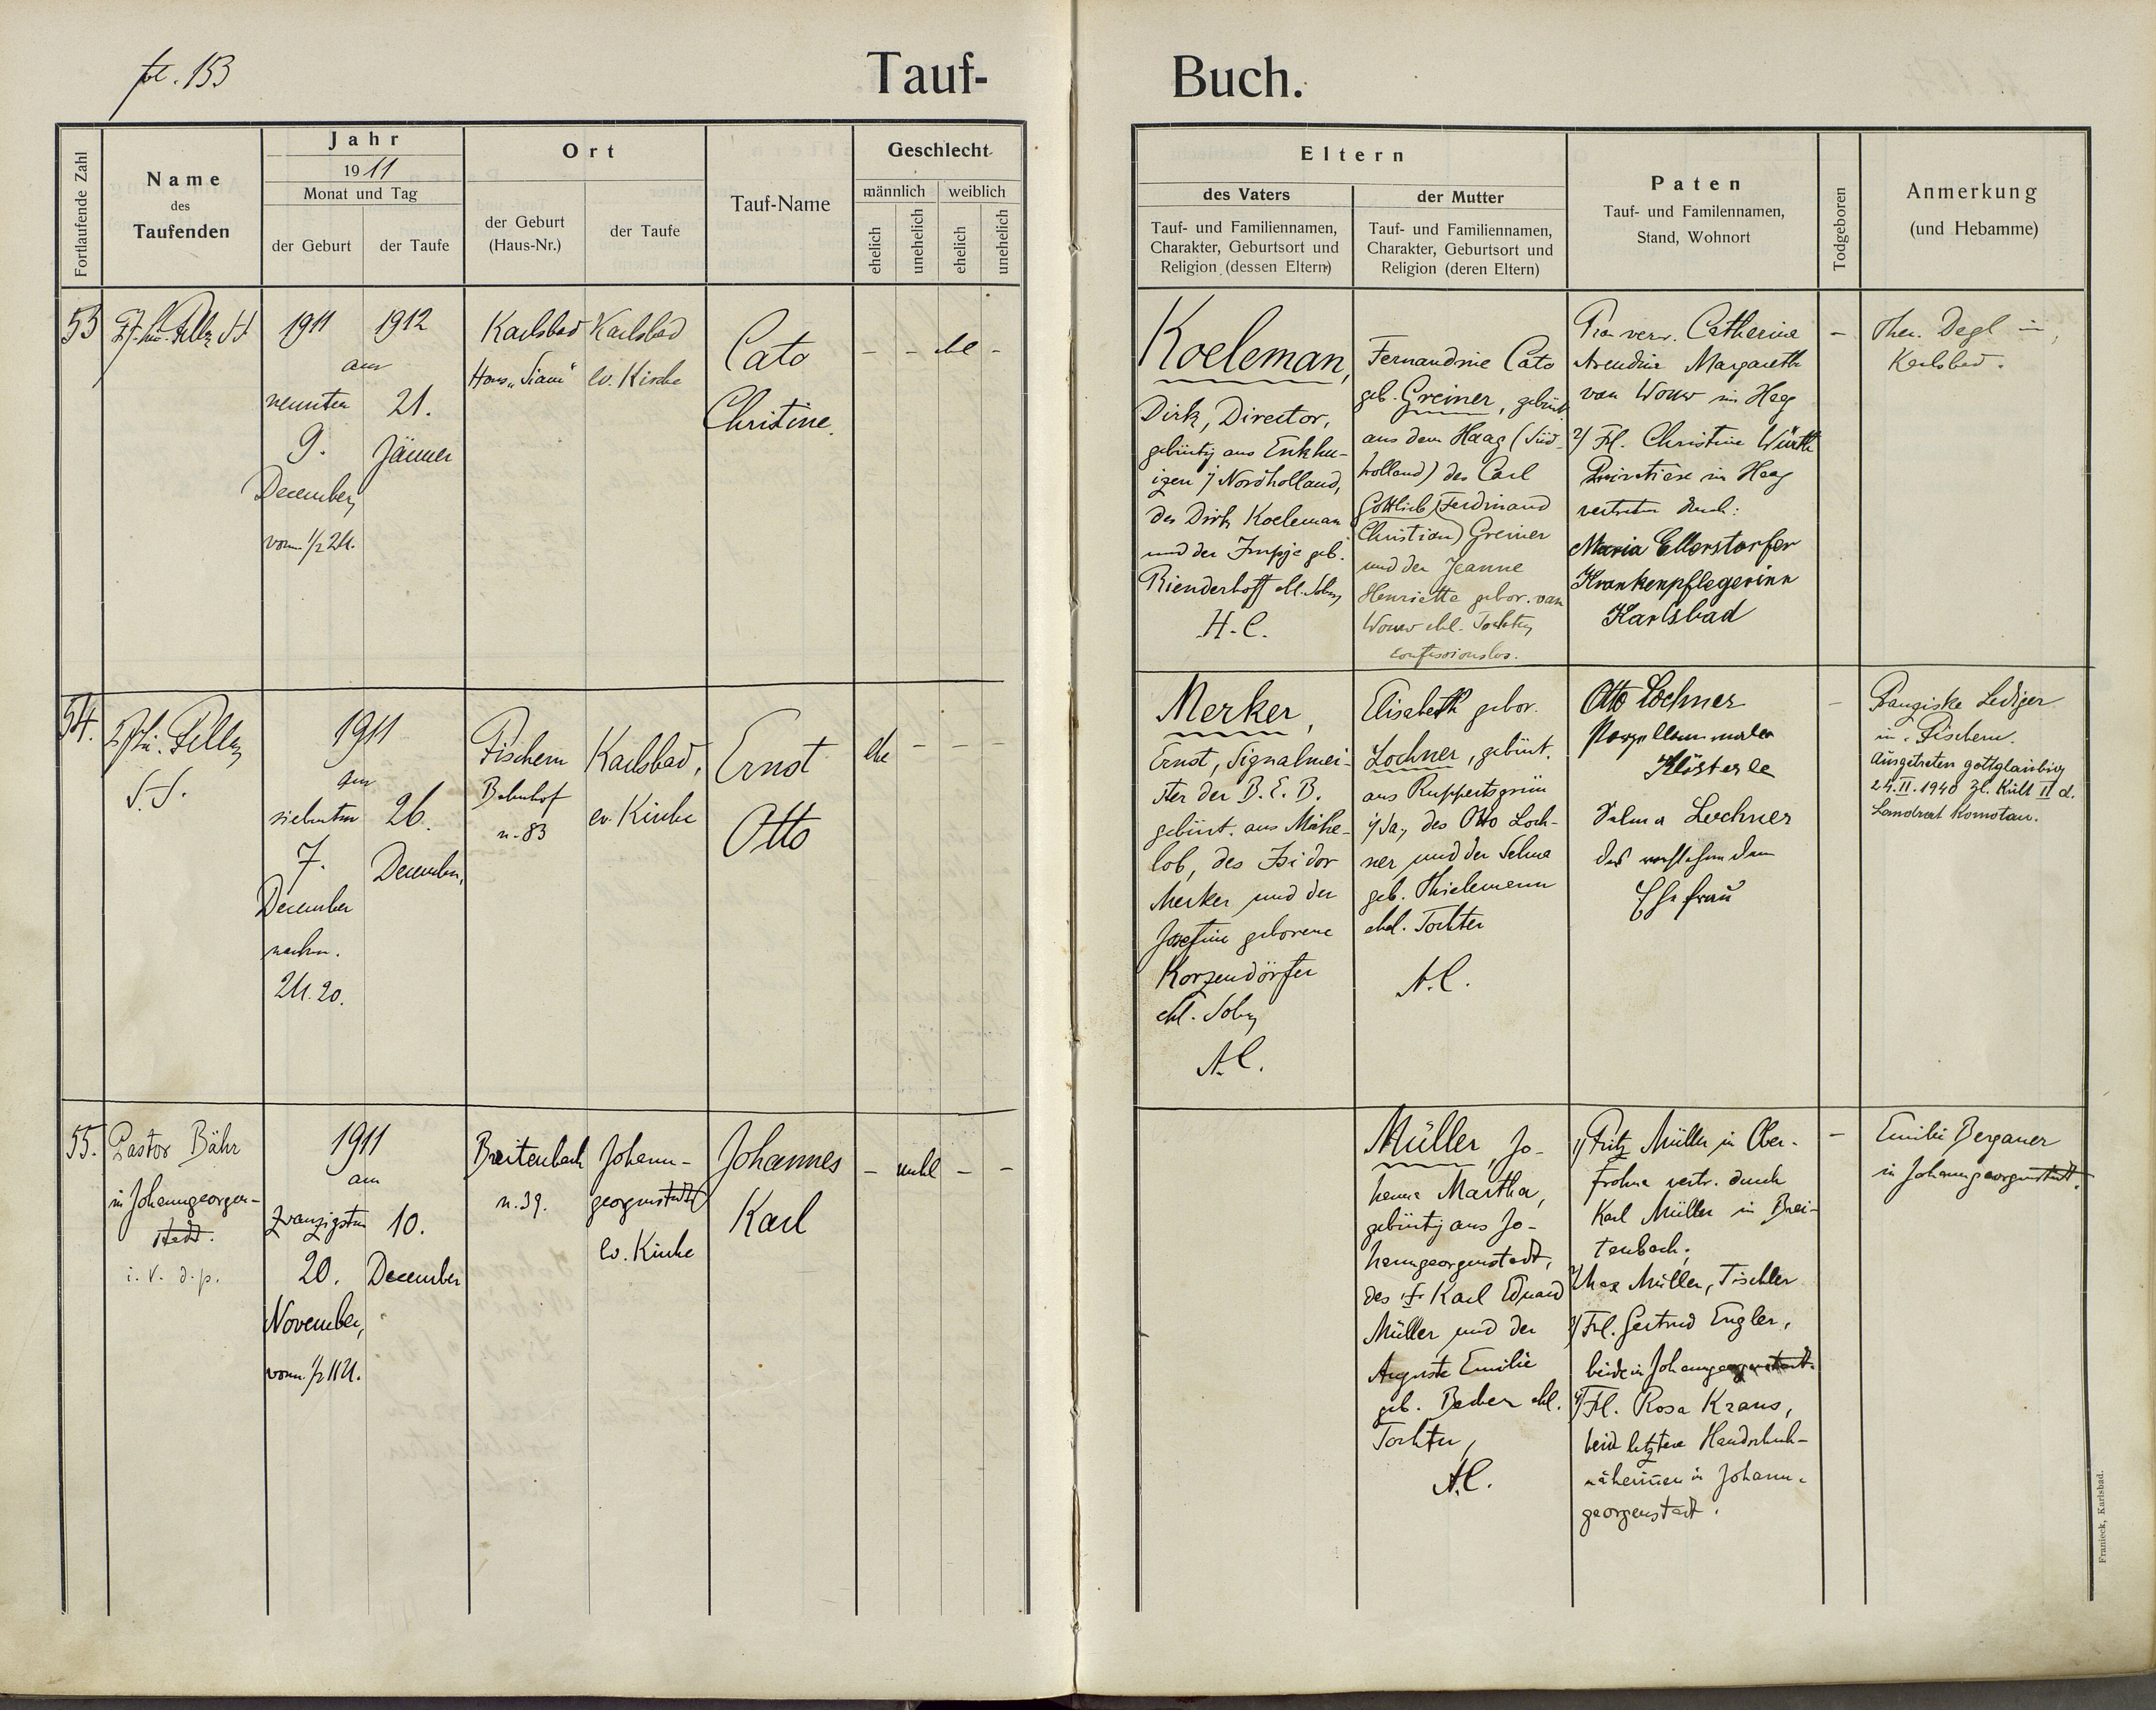 fol. 153
Tauf-
Buch.
Fortlaufende Zahl
Name
des
Taufenden
Jahr
1911
Monat und Tag
der Geburt
der Taufe
Ort
der Geburt
(Haus-Nr.)
der Taufe
Tauf-Name
Geschlecht
männlich
weiblich
ehelich
unehelich
ehelich
unehelich
Eltern
des Vaters
Tauf- und Familiennamen,
Charakter, Geburtsort und
Religion (dessen Eltern)
der Mutter
Tauf- und Familiennamen,
Charakter, Geburtsort und
Religion (deren Eltern)
Paten
Tauf- und Familennamen,
Stand, Wohnort
Todgeboren
Anmerkung
(und Hebamme)
53
1911
am
neunten
9.
December,
vorm. 1/2 2 U.
1912
21.
Jänner
Karlsbad
Haus „Siam"
Karlsbad
ev. Kirche
Cato
Christine.
- - ehl -
Koeleman,
Dirk, Director,
gebürtig aus Enkhu-
izen i/ Nordholland,
des Dirk Koeleman
und der geb.
Rienderhoff ehl. Sohn,
H.C.
Fernandine Cato
geb. Greiner, gebürt.
aus dem Haag (Süd-
holland) des Carl
Gottlieb (Ferdinand
Christian) Greiner
und der Jeanne
Henriette gebor. van
Wouw ehl. Tochter,
confessionslos.
Frau verw. Catherine
Arendina Margareth
van Wouw im Haag
2/ Frl. Christine Würth
Privatiere im Haag
vertreten durch:
Maria Ellerstorfer
Krankenpflegerinn
Karlsbad
-
Ther. Degl in
Karlsbad.
54.
1911
am
siebenten
7.
December
nachm.
2 U. 20.
26.
December,
Fischern
Bahnhof
n. 83
Karlsbad,
ev. Kirche
Ernst
Otto
ehe - - -
Merker,
Ernst, Signalmei-
ster der B. E. B.
gebürt. aus Miche-
lob, des Isidor
Merker und der
Josefine geborene
Korzendörfer
ehl. Sohn,
A.C.
Elisabeth gebor.
Lochner, gebürt.
aus Ruppertsgrün
i/Sa., des Otto Loch-
ner und der Selma
geb. Thielemann
ehel. Tochter
A.C.
Otto Lochner
Porzellanmaler
Klösterle
Selma Lochner
des vorstehenden
Ehefrau
-
Franziska Lediger
in Fischern.
Ausgetreten gottgläubig
24.II.1940 Zl. Kult II d.
Landrat Komotau.
55.
Pastor Bähr
in Johanngeorgen-
stadt.
i. V. d. p.
1911
am
zwanzigsten
20.
November,
vorm. 1/2 11 U.
10.
December
Breitenbach
n. 39.
Johann-
georgenstadt
ev. Kirche
Johannes
Karl
- unehl - -
Müller, Jo-
hanna Martha,
gebürtig aus Jo-
hanngeorgenstadt,
des † Karl Eduard
Müller und der
Auguste Emilie
geb. Becher ehl.
Tochter,
A.C.
1/ Fritz Müller in Ober-
frohna vertr. durch
Karl Müller in Brei-
tenbach;
2/ Max Müller, Tischler
3/ Frl. Gertrud Engler,
beide in Johanngeorgenstadt.
4/ Frl. Rosa Kraus,
beide letztere Handschuh-
näherinnen in Johann-
georgenstadt.
-
Emilie Bergauer
in Johanngeorgenstadt.
Franieck, Karlsbad.